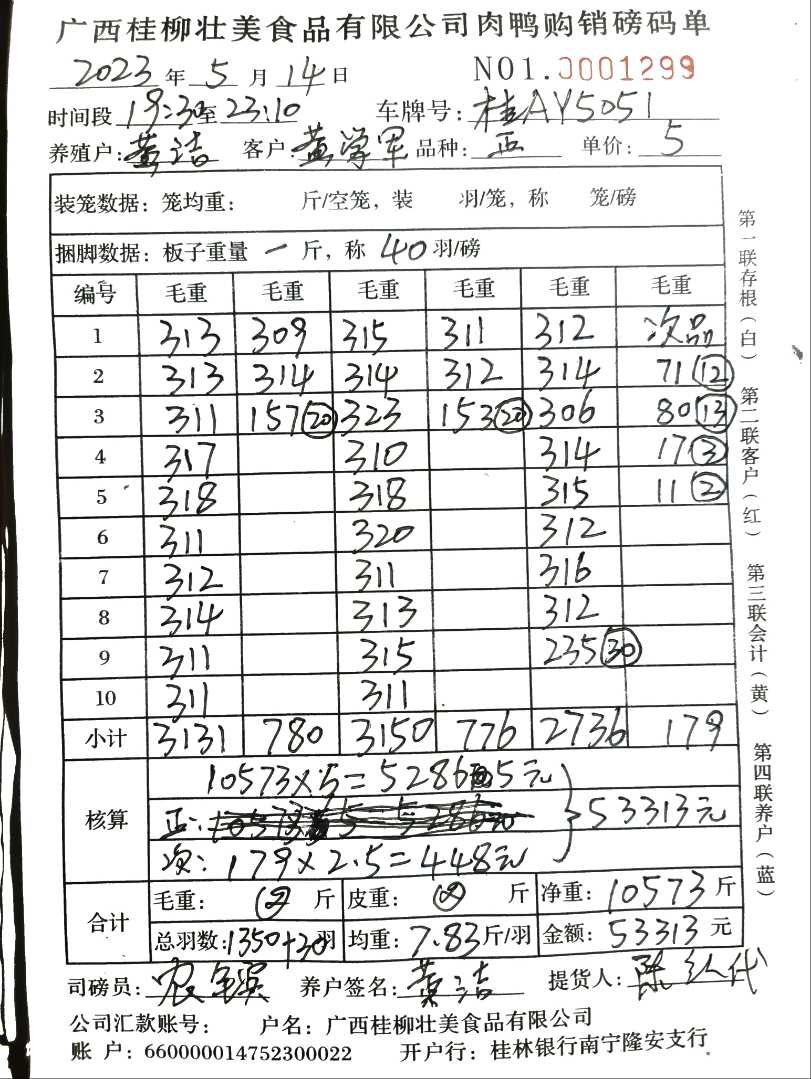 广西桂柳壮美食品有限公司肉鸭购销磅码单
2023年5月14日 NO1.0001299
时间段19:30至23:10 车牌号:桂AY5051
养殖户:黄洁 客户:黄学军 品种:正 单价:5
装笼数据:笼均重: 斤/空笼,装 羽/笼,称 笼/磅
捆脚数据:板子重量一斤,称40羽/磅
编号 毛重 毛重 毛重 毛重 毛重 毛重
1 313 309 315 311 312 次品
2 313 314 314 312 314 71⑫
3 311 157⑳ 323 153⑳ 306 80⑬
4 317 310 314 17③
5 318 318 315 11②
6 311 320 312
7 312 311 316
8 314 313 312
9 311 315 235㉚
10 311 311
小计 3131 780 3150 776 2736 179
核算
10573×5=52865元
正:
次:179×2.5=448元
53313元
合计
毛重: 斤 皮重: 斤 净重:10573斤
总羽数:1350+30羽 均重:7.83斤/羽 金额:53313元
司磅员: 养户签名:黄洁 提货人:
公司汇款账号: 户名:广西桂柳壮美食品有限公司
账 户:660000014752300022 开户行:桂林银行南宁隆安支行
第一联存根(白) 第二联客户(红) 第三联会计(黄) 第四联养户(蓝)